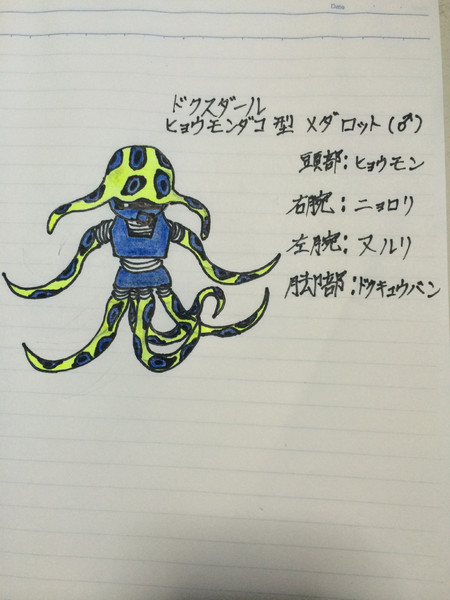 Date
ドクスダール
ヒョウモンダコ型 メダロット(♂)
頭部:ヒョウモン
右腕:ニョロリ
左腕:ヌルリ
脚部:ドクキュウバン